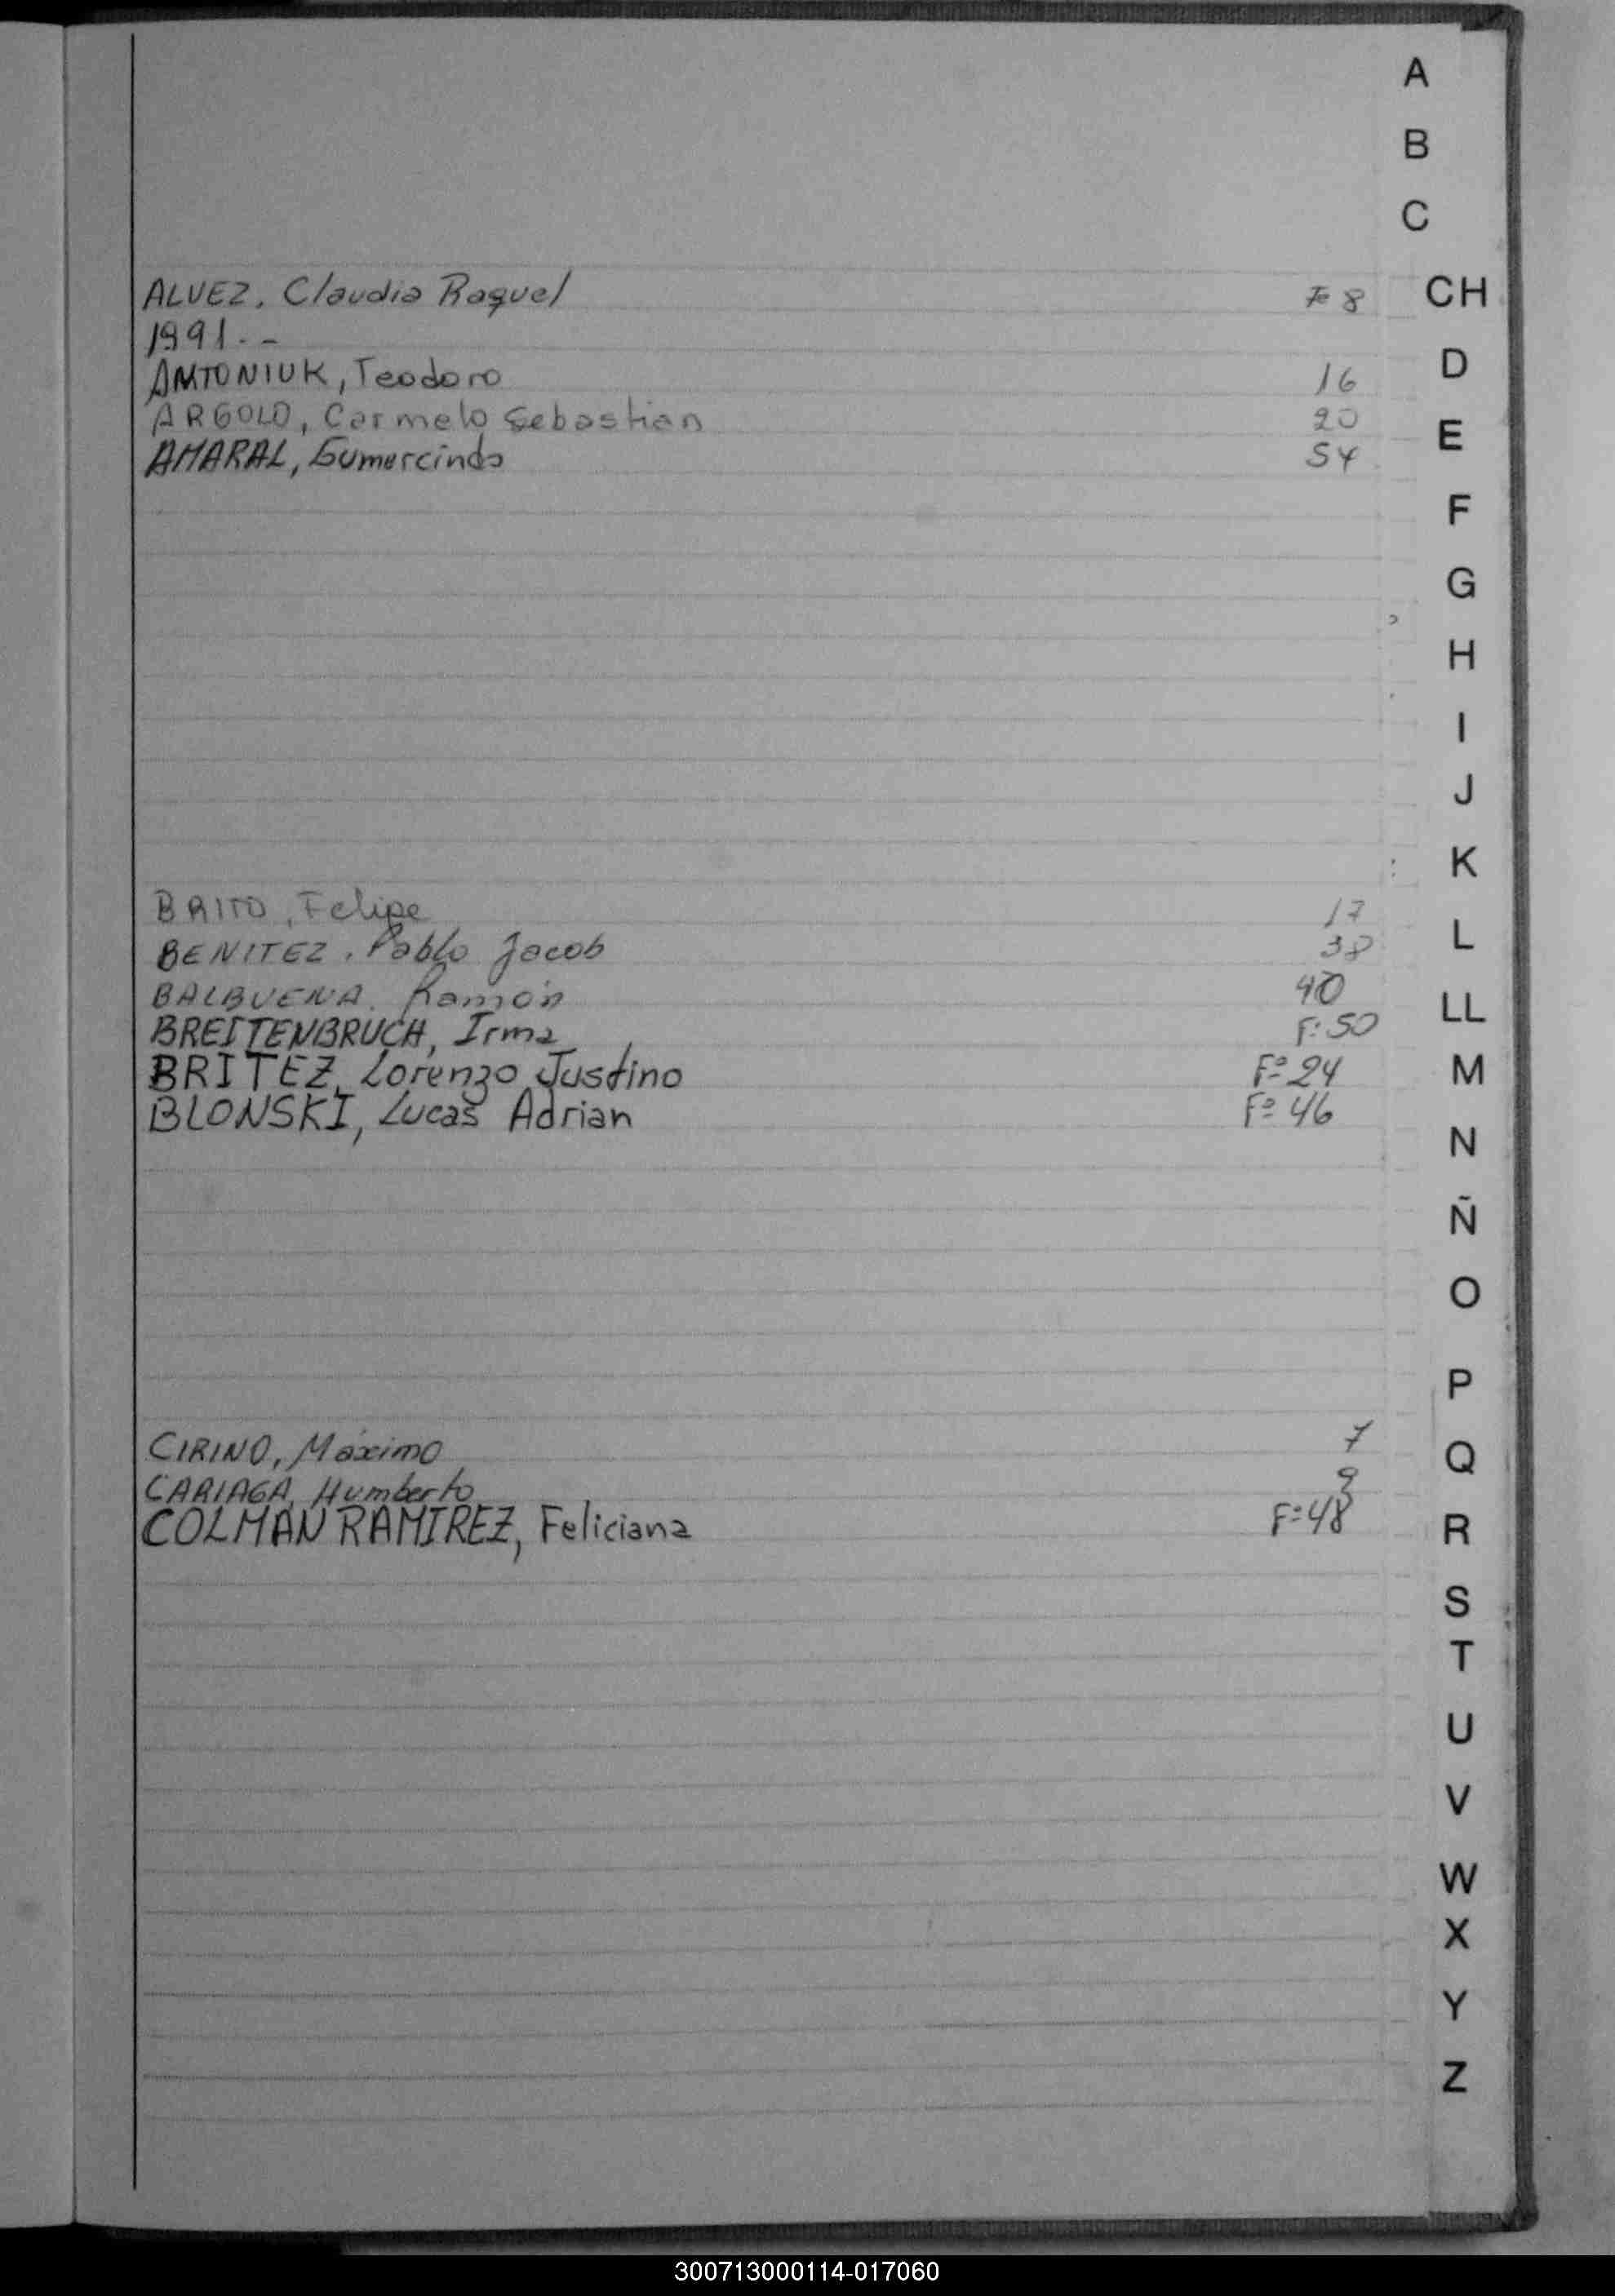 A
B
C
ALVEZ, Claudia Raquel Fº 8 CH
1991.-
D
ANTONIUK, Teodoro 16
ARGOLO, Carmelo Sebastian 20
E
AMARAL, Gumercindo 54
F
G
H
I
J
K
BRITO, Felipe 17
L
BENITEZ, Pablo Jacob 38
BALBUENA, Ramón 40
LL
BREITENBRUCH, Irma F: 50
BRITEZ, Lorenzo Justino Fº 24 M
BLONSKI, Lucas Adrian Fº 46
N
Ñ
O
P
CIRINO, Máximo 7
Q
CARIAGA, Humberto 9
COLMAN RAMIREZ, Feliciana F:48
R
S
T
U
V
W
X
Y
Z
300713000114-017060